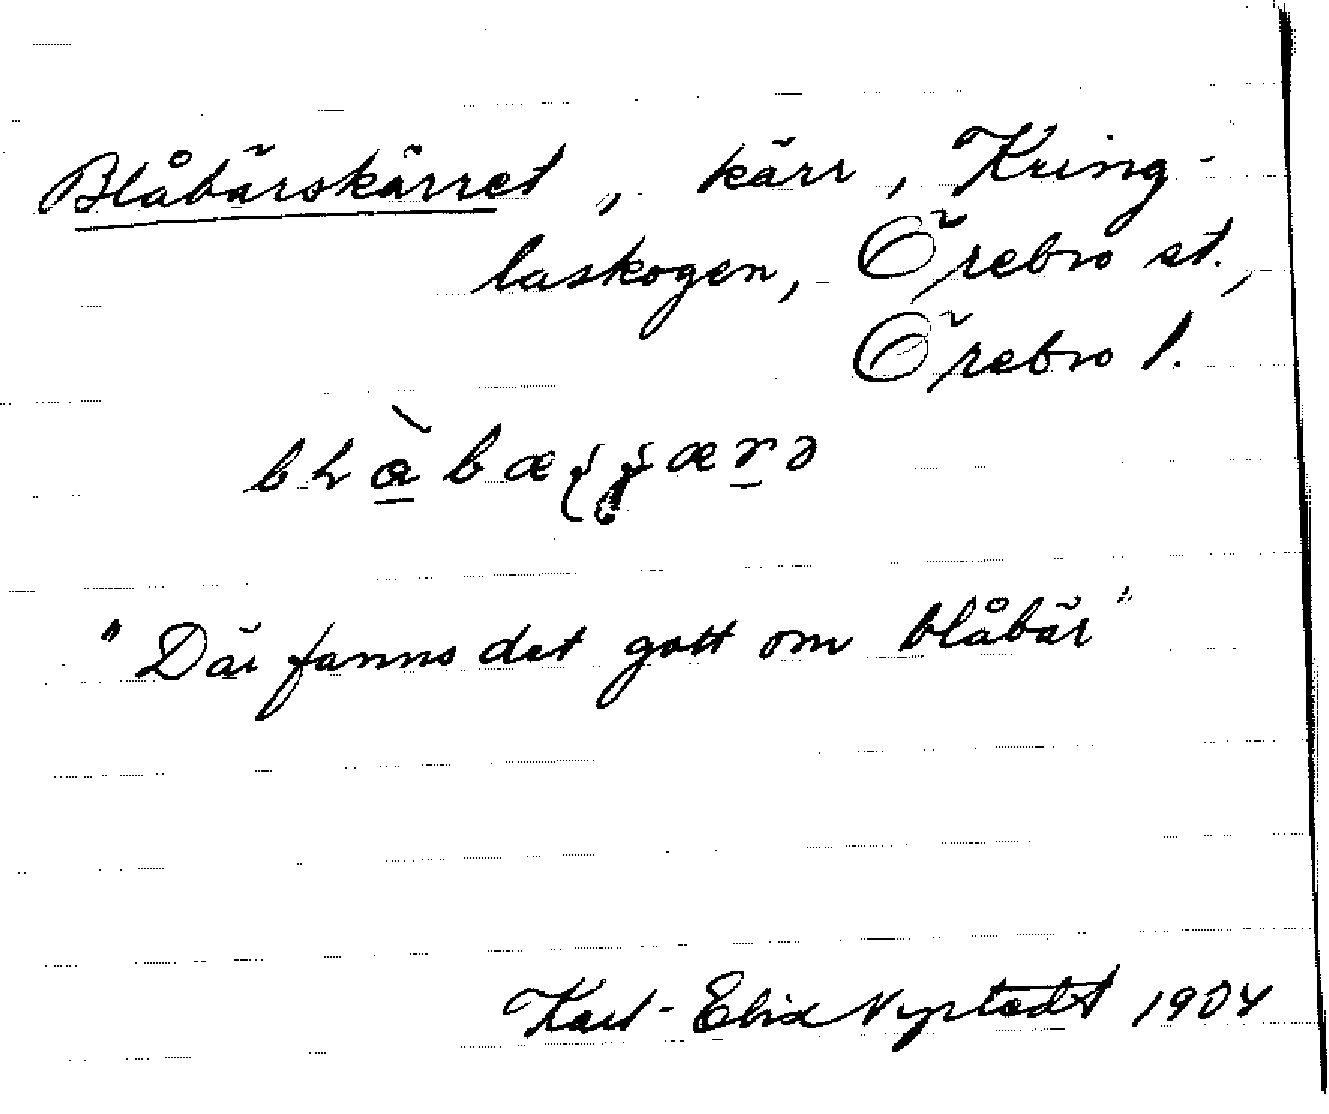 Blåbärskärret, kärr, Kring-
laskogen, Örebro st.,
Örebro l.
"Där fanns det gott om blåbär"
Karl-Elis Nystedt 1904